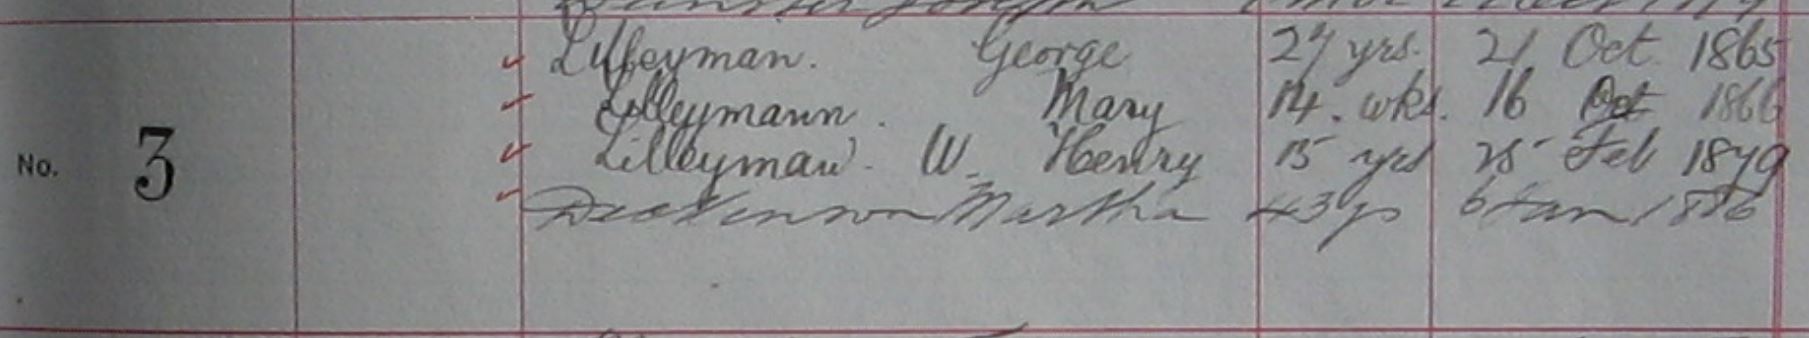 Lilleyman. George 27 yrs. 21 Oct 1865
Lilleymann. Mary 14. wks. 16 Oct 1866
No. 3 Lilleyman. W. Henry 15 yrs 25 Feb 1879
Dickinson Martha 43 ys 6 Jan 1886